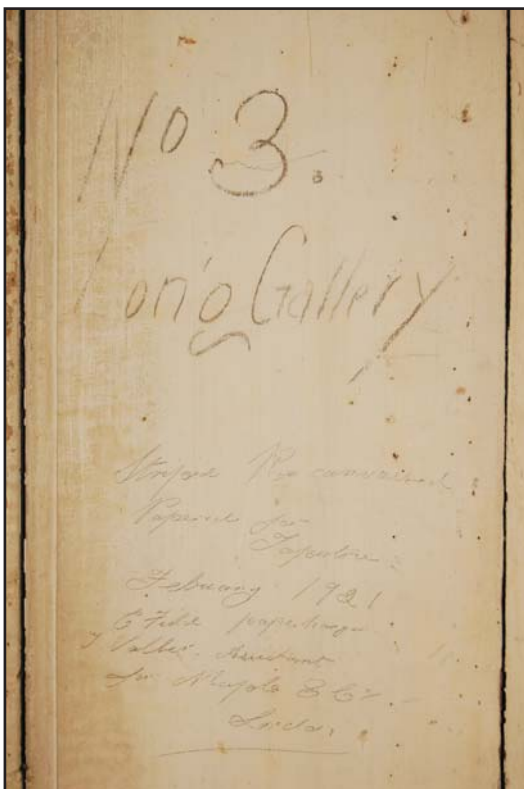 No 3.
Long Gallery
Striped Re canvassed
Papered for
February 1921
C Field paperhanger
Assistant
for Maple & Co.
London